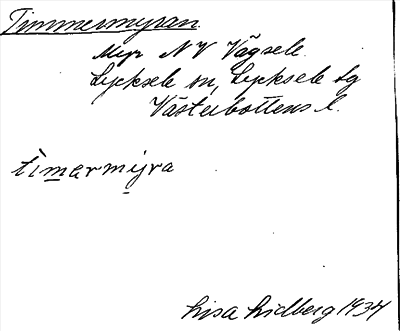 Timmermyran.
Myr NV Vägsele.
Lycksele sn, Lycksele lg
Västerbottens l.
tìmarmýra
Lisa Lidberg 1934